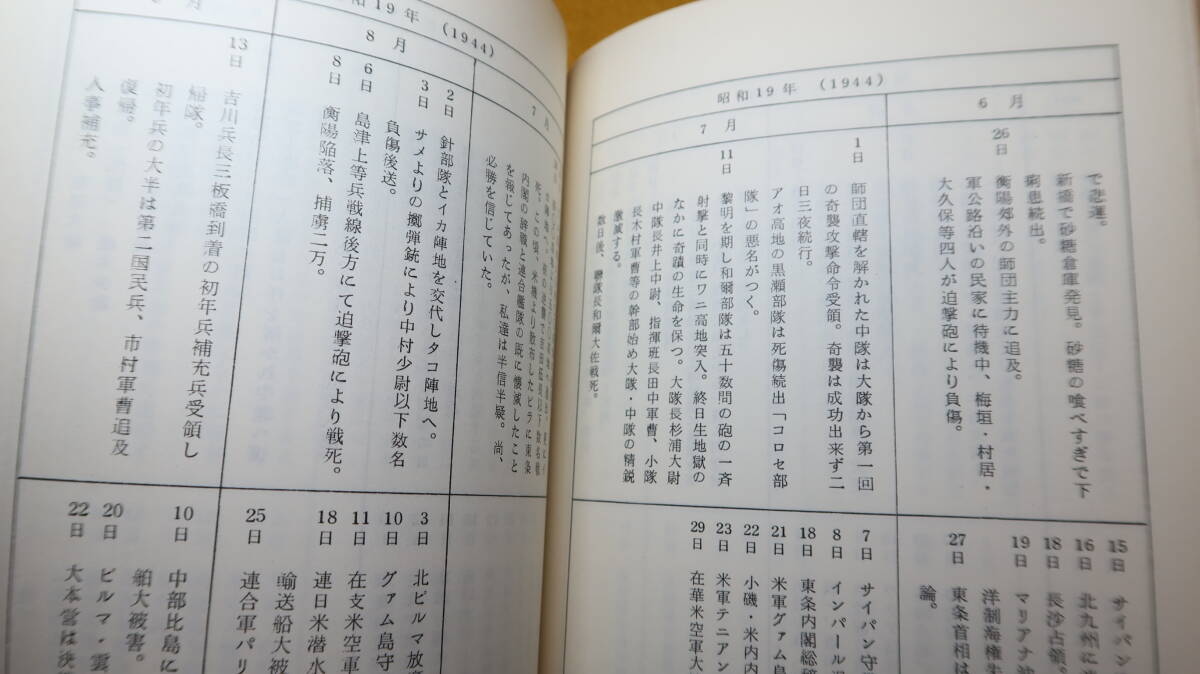 昭和19年 (1944)
6 月
で悲運。
新橋で砂糖倉庫発見。砂糖の喰べすぎで下
痢患続出。
26日 衡陽郊外の師団主力に追及。
軍公路沿いの民家に待機中、梅垣・村居・
大久保等四人が迫撃砲により負傷。
7 月
1日 師団直轄を解かれた中隊は大隊から第一回
の奇襲攻撃命令受領。奇襲は成功出来ず二
日三夜続行。
アオ高地の黒瀬部隊は死傷続出「コロセ部
隊」の悪名がつく。
11日 黎明を期し和爾部隊は五十数問の砲の一斉
射撃と同時にワニ高地突入。終日生地獄の
なかに奇蹟の生命を保つ。大隊長杉浦大尉
中隊長井上中尉、指揮班長田中軍曹、小隊
長木村軍曹等の幹部始め大隊・中隊の精鋭
激減する。
数日後、聯隊長和爾大佐戦死。
15日 サイパン
16日 北九州に
18日 長沙占領。
19日 マリアナ
洋制海権
27日 東条首相は
論。
7日 サイパン守
8日 インパール
18日 東条内閣総
21日 米軍グァム島
22日 小磯・米内内
23日 米軍テニアン
29日 在華米空軍大
昭和19年 (1944)
7 月
この頃、米機より散布したビラに東条
内閣の辞職と連合艦隊の既に懐滅したこと
を報じてあったが、私達は半信半疑。尚、
必勝を信じていた。
8 月
2日 針部隊とイカ陣地を交代しタコ陣地へ。
3日 サメよりの擲弾銃により中村少尉以下数名
負傷後送。
6日 島津上等兵戦線後方にて迫撃砲により戦死。
8日 衡陽陥落、捕虜二万。
月
13日 吉川兵長三板橋到着の初年兵補充兵受領し
帰隊。
初年兵の大半は第二国民兵、市村軍曹追及
復帰。
人事補充。
3日 北ビルマ放
10日 グァム島守
11日 在支米空軍
18日 連日米潜水
輸送船大被
25日 連合軍パリ
10日 中部比島に
舶大被害。
20日 ビルマ・雲
22日 大本営は決